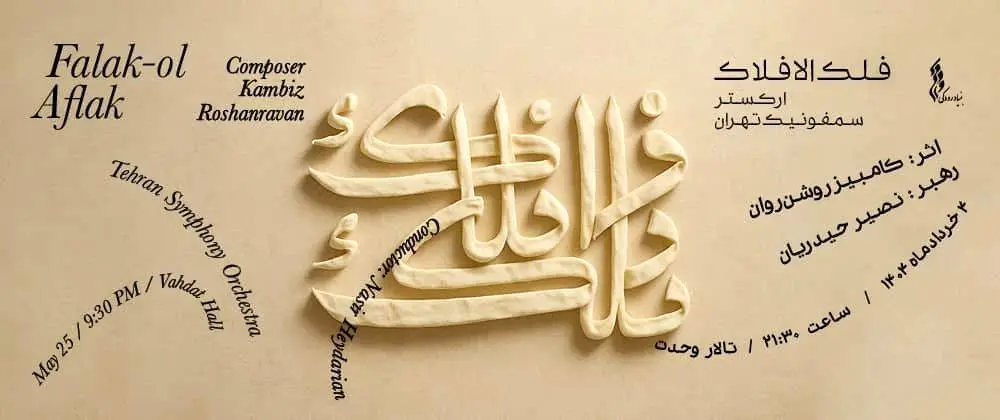 Falak-ol
Aflak
Composer
Kambiz
Roshanravan
Tehran Symphony Orchestra
May 25 / 9:30 PM / Vahdat Hall
Conductor: Nasir Heydarian
فلک الافلاک
فلک الافلاک
ارکستر
سمفونیک تهران
اثر: کامبیز روشن‌روان
رهبر: نصیر حیدریان
۴ خردادماه ۱۴۰۴ / ساعت ۲۱:۳۰ / تالار وحدت
بنیاد رودکی